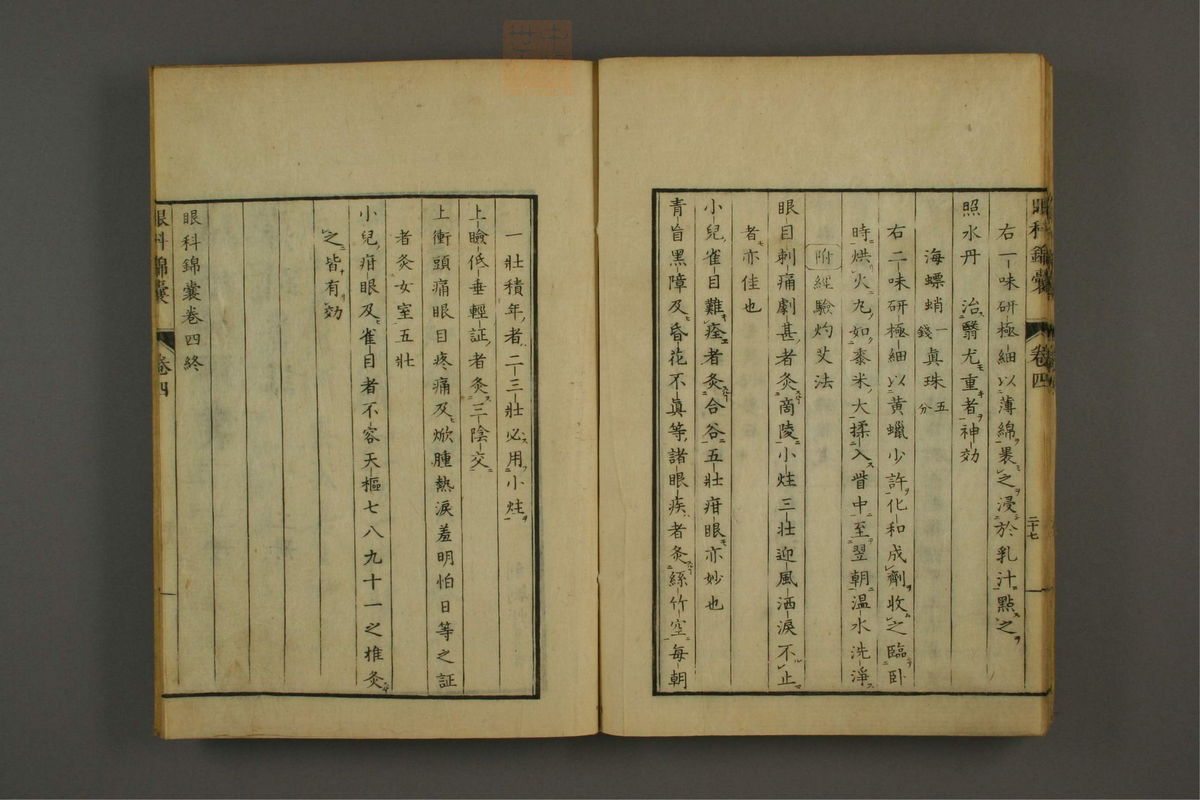 眼科錦囊 卷四 二十七
右一味研極細以薄綿裹之浸於乳汁點之
照水丹 治翳尤重者神効
海螵蛸一錢眞珠五分
右二味研極細以黃蠟少許化和成劑收之臨卧
時烘火丸如黍米大揉入眥中至翌朝温水洗淨
附經驗灼艾法
眼目刺痛劇甚者灸商陵小炷三壯迎風洒淚不止
者亦佳也
小兒雀目難痊者灸合谷五壯疳眼亦妙也
青盲黑障及昏花不眞等諸眼疾者灸絲竹空每朝
一壯積年者二三壯必用小炷
上瞼低垂輕証者灸三陰交
上衝頭痛眼目疼痛及焮腫熱淚羞明怕日等之証
者灸女室五壯
小兒疳眼及雀目者不容天樞七八九十一之椎灸
之皆有効
眼科錦囊卷四終
眼科錦囊 卷四